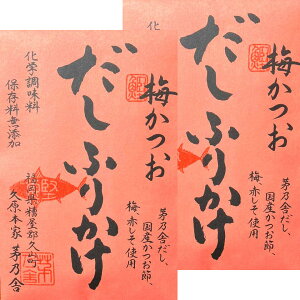 梅かつお
だしふりかけ
茅乃舎だし、
国産かつお節、
梅、赤しそ使用
化学調味料
保存料無添加
福岡県糟屋郡久山町
久原本家 茅乃舎
化
梅かつお
だしふりかけ
茅乃舎だし、
国産かつお節、
梅、赤しそ使用